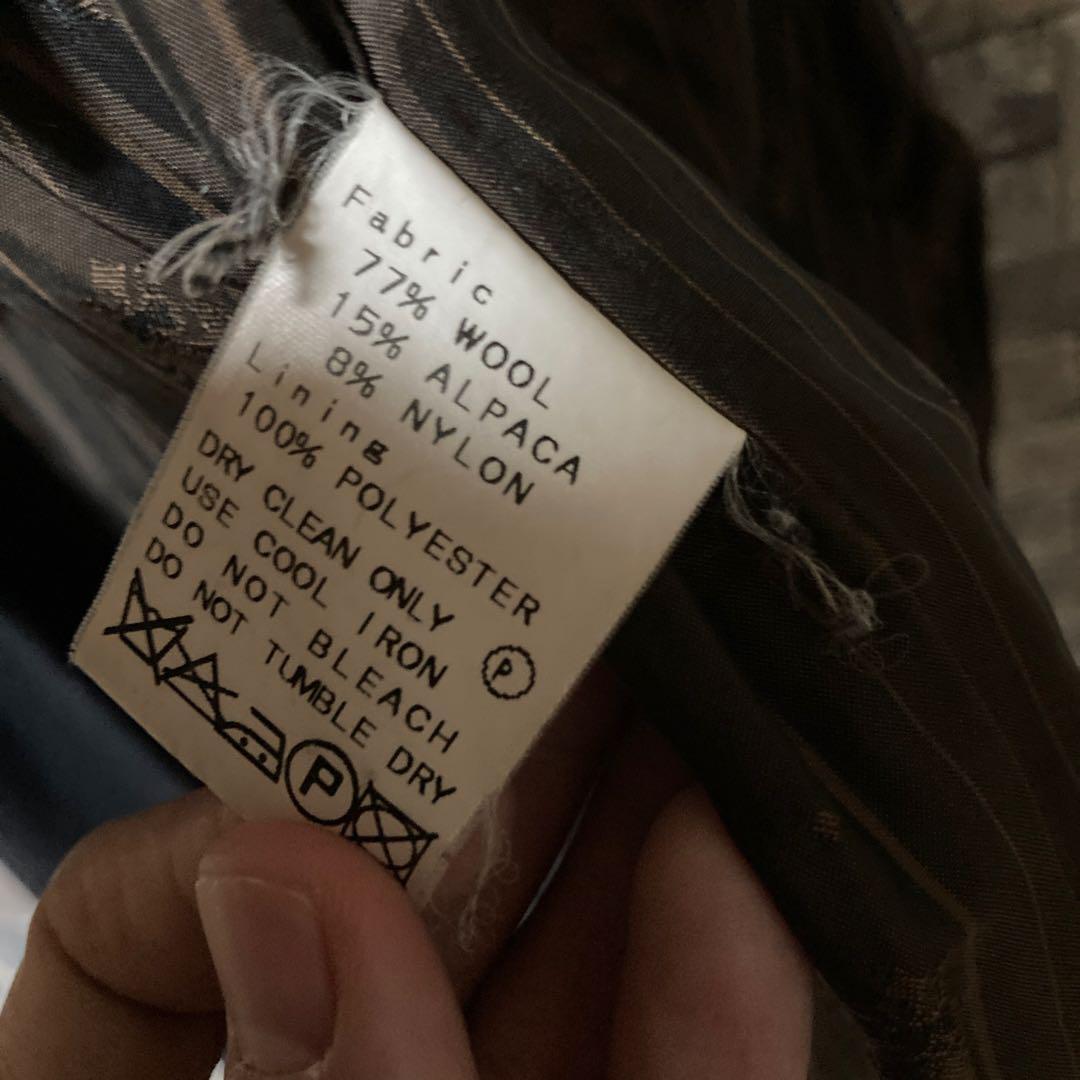 Fabric
77% WOOL
15% ALPACA
8% NYLON
Lining
100% POLYESTER
DRY CLEAN ONLY Ⓟ
USE COOL IRON
DO NOT BLEACH
DO NOT TUMBLE DRY
P